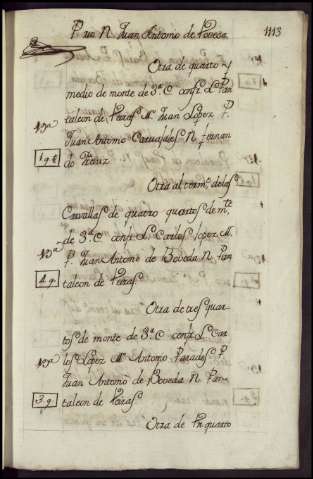 P. un N. Juan Antonio de Boveda 1113
Otra de quatro y
medio de monte de 3.ª C confr. L. Pan
taleon de Paras M. Juan Lopez P.
Juan Antonio N. Fernan
do
Otra al term.º de las
Cavallas de quatro quartos de m.te
de 3.ª C confr. L. Carlos Lopez M.
P. Juan Antonio de Boveda N. Pan
taleon de Paras
4 q.
Otra de tres quar-
tos de monte de 3.ª C confr. L. Car
los Lopez M. Antonio Paradas P.
Juan Antonio de Boveda N. Pan-
taleon de Paras
3 q.
Otra de un quarto